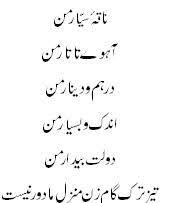 ناقۂ سیّارِ من
آہوے تاتارِ من
درہم و دینارِ من
اندک و بسیارِ من
دولت بیدارِ من
تیز ترک گام زن منزل ما دور نیست